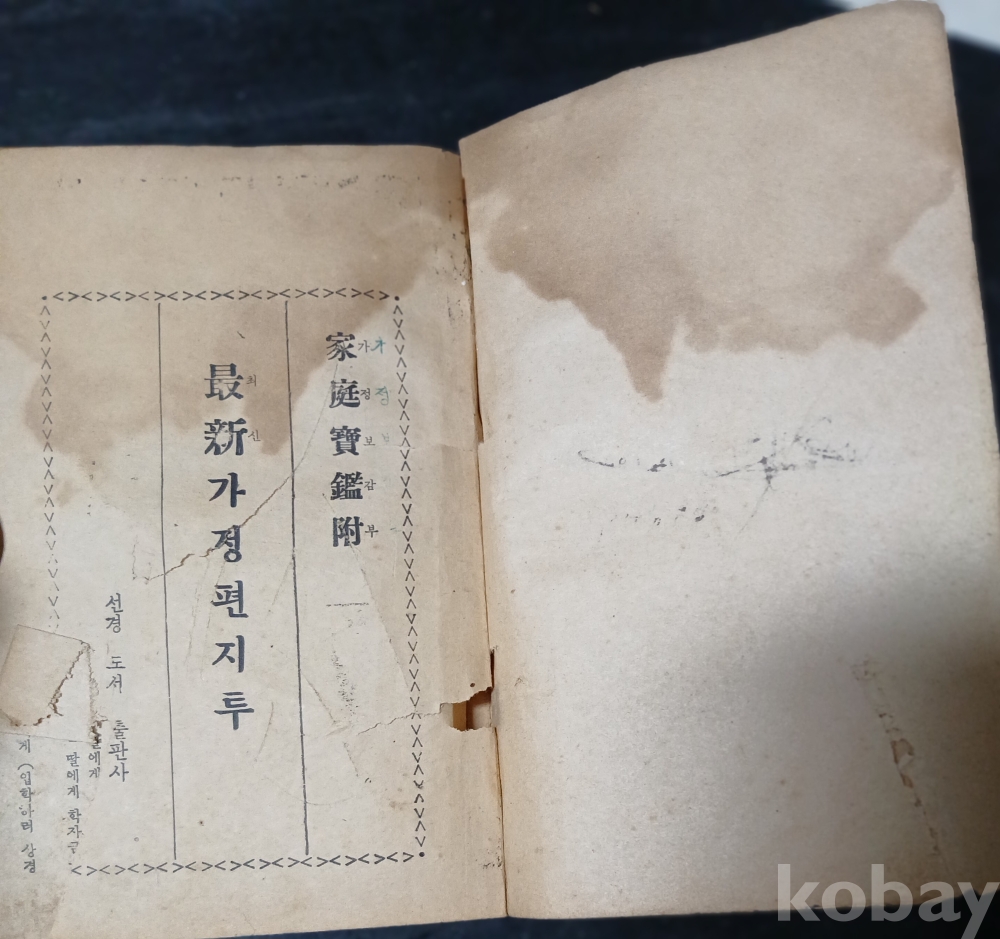 家庭寶鑑附
가정보감부
가정
最新가정편지투
최신
선경 도서 출판사
에게
딸에게 학자
게 (입학하려 상경
kobay